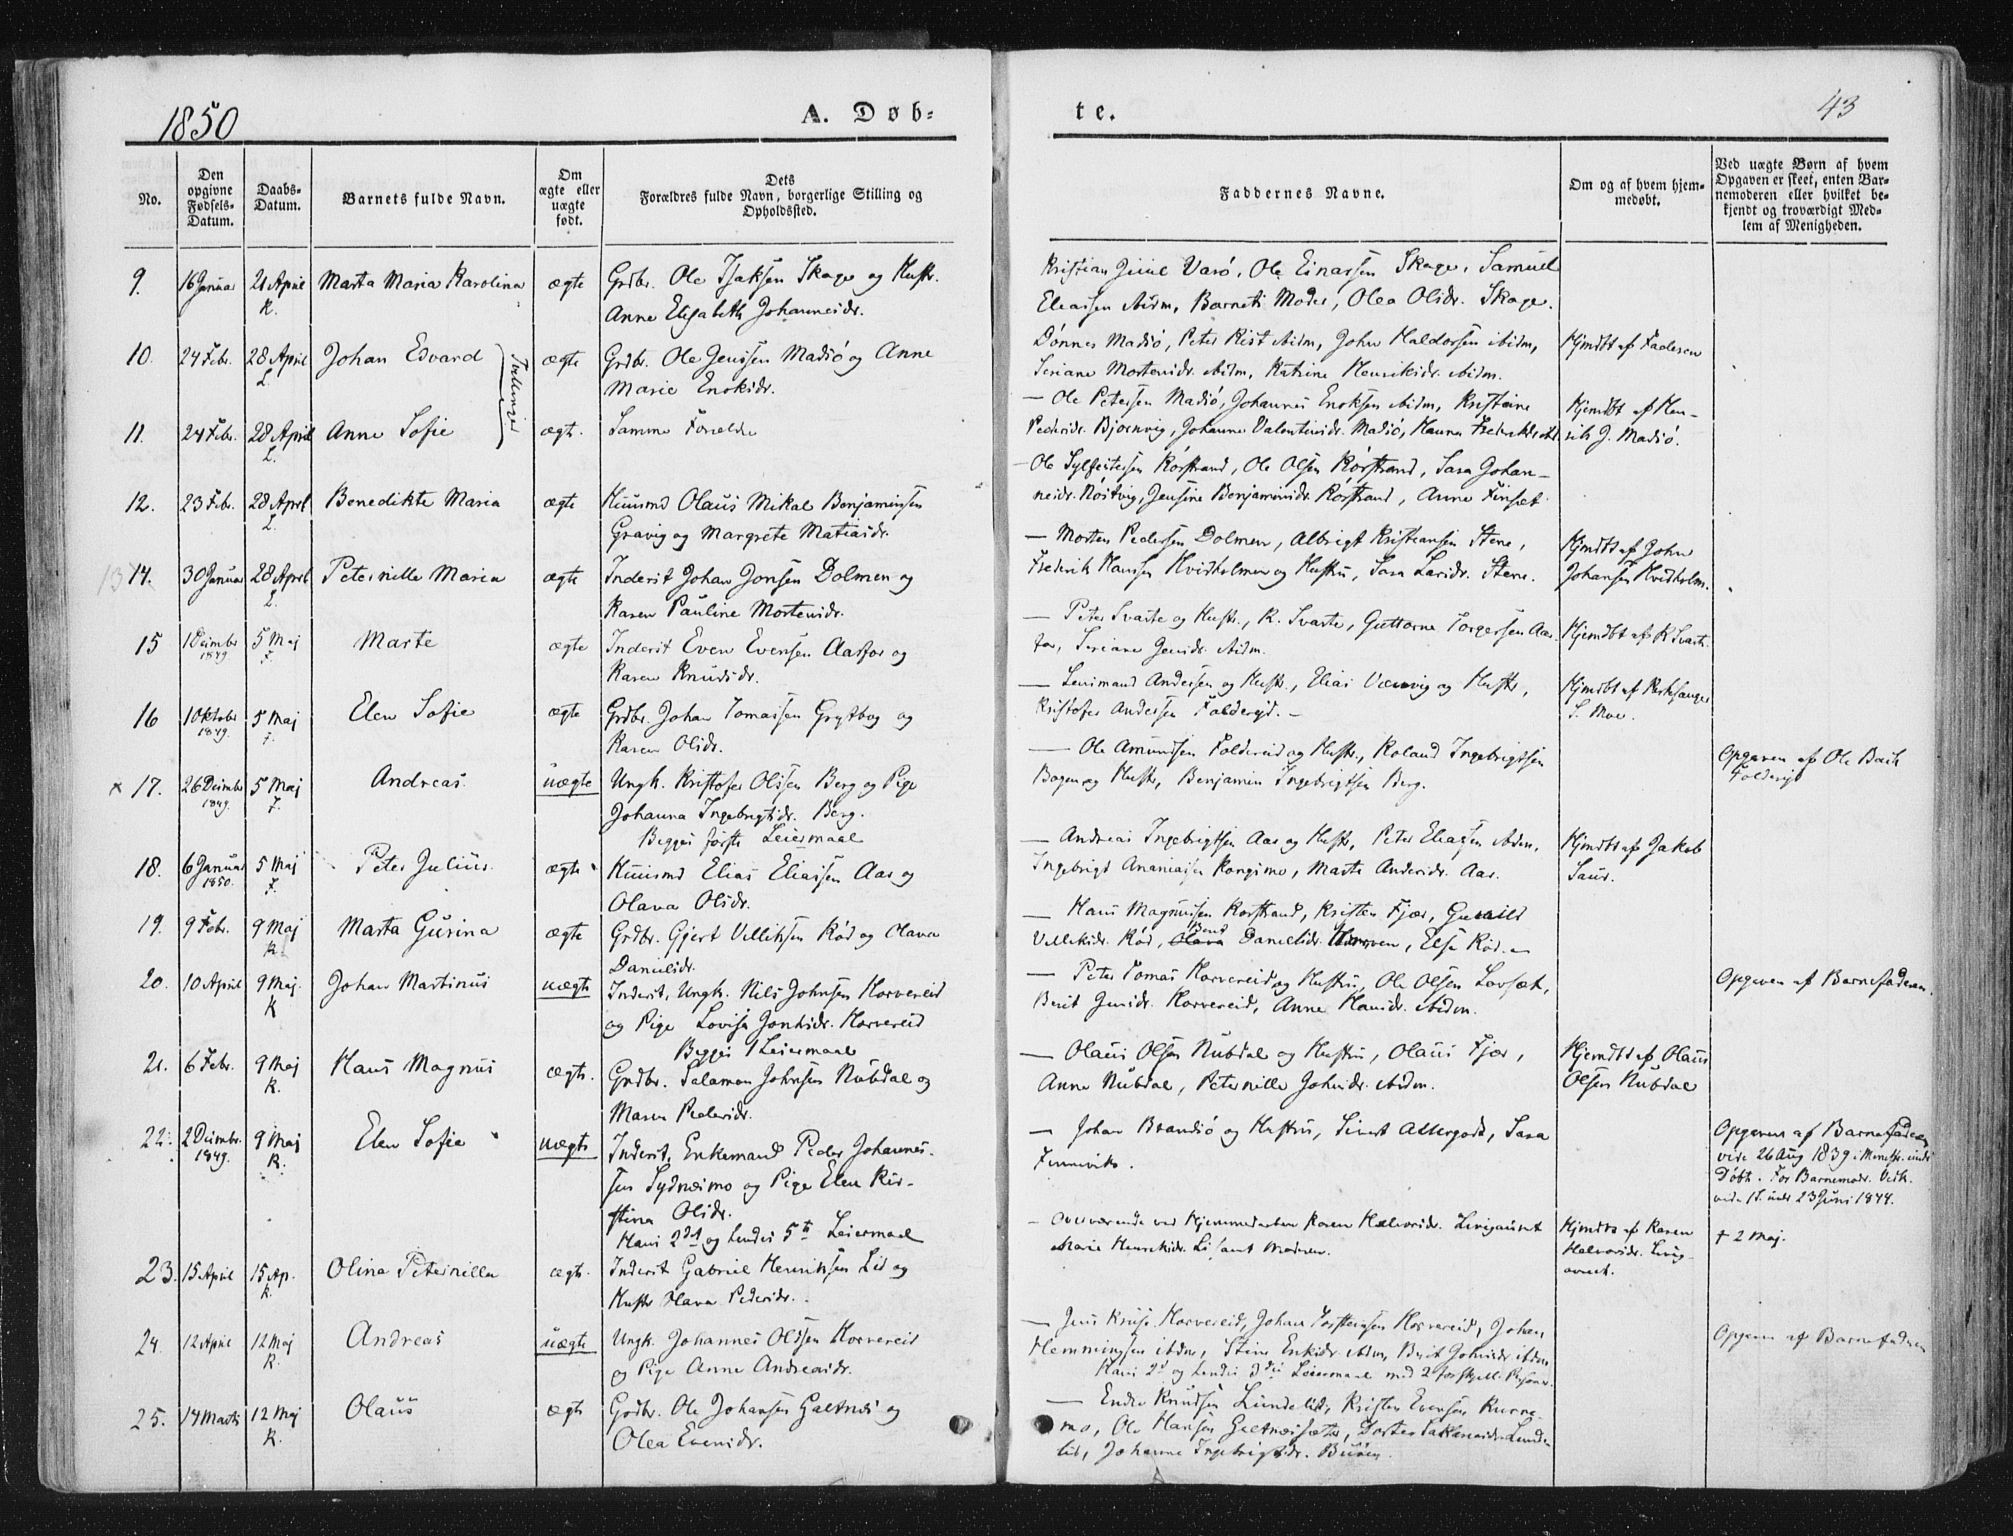 1850
A. Døb-
te.
43
No.
Den opgivne Fødsels-Datum.
Daabs-Datum.
Barnets fulde Navn.
Om ægte eller uægte født.
Dets Forældres fulde Navn, borgerlige Stilling og Opholdssted.
Faddernes Navne.
Om og af hvem hjem-medøbt.
Ved uægte Børn af hvem
Opgaven er skeet, enten Bar-
nemoderen eller hvilket be-
kjendt og troværdigt Med-
lem af Menigheden.
9. 16 Januar 21 April Marta Maria Karolina ægte Grdbr. Ole Isaksen Skage og Hustr.
K. Anne Elisabeth Johannesdr.
Kristian Juul Varø, Ole Einarsen Skage, Samuel
Eliassen ibidm, Barnets Moder, Olea Olsdr. Skage.
10. 24 Febr. 28 April Johan Edvard ægte Grdbr. Ole Jenssen Madsø og Anne
L. Marie Enoksdr.
Tvillinger
Dønnes Madsø, Peter Rist ibidm, John Haldorsen ibidm,
Seriane Mortensdr. ibidm, Katrine Henriksdr. ibidm.
Hjmdbt af Faderen
11. 24 Febr. 28 April Anne Sofie ægt. Samme Forældre
L.
— Ole Petersen Madsø, Johannes Enoksen ibidm, Kristine
Pedersdr. Bjørnvig, Johanna Valentinsdr. Madsø, Hanna
Hjemdbt af Hen-
rik J. Madsø.
12. 23 Febr. 28 April Benedikte Maria ægte Huusmd Olaus Mikal Benjaminsen
L. Gravig og Margrete Matiasdr.
— Ole Sylfestersen Rørstrand, Ole Olsen Rørstrand, Sara Johan-
nesdr. Røitvig, Jensine Benjaminsdr. Rørstrand, Anne Finsæt.
13 14. 30 Januar 28 April Peternille Maria ægte Inderst Johan Jonsen Dolmen og
L. Karen Pauline Mortensdr.
— Morten Pedersen Dolmen, Albrigt Kristiansen Stene,
Frederik Hansen Hvidholmen og Hustru, Sara Larsdr. Stene.
Hjmdbt af John
Johansen Hvidholm.
15 1 Decimber 5 Maj Marte ægte Inderst Even Evensen Aasfor og
1849 F. Karen Knudsdr.
— Peter Svarte og Hustr., K. Svarte, Guttorm Torgersen Aas-
for, Seriane Jensdr. ibidm.
Hjemdbt af K Svarte.
16 1 Oktobr 5 Maj Elen Sofie ægte Grdbr. Johan Tomassen Grytbog og
1849. F. Karen Olsdr.
— Lensmand Andersen og Hustr., Elias Værvig og Hustr,
Kristofer Andersen Foldereid. —
Hjmdbt af Kirksanger
S. Moe.
x 17. 26 Decimber 5 Maj Andreas. uægte Ungk. Kristofer Olssen Berg og Pige
1849. F. Johanna Ingebrigtsdr. Berg.
Begges første Leiermaal
— Ole Amundsen Foldereid og Hustr, Roland Ingebrigtsen
Bogen og Hustr, Benjamin Ingebrigtsen Berg.
Opgaven af Ole Bach
Foldereid
18. 6 Januar 5 Maj Peter Julius. ægte Huusmd Elias Eliassen Aas og
1850. F. Olava Olsdr.
— Andreas Ingebrigtsen Aas og Hustr, Peter Eliasen ibidm,
Ingebrigt Ananiasen Kongsmo, Marta Andersdr. Aas.
Hjmdbt af Jakob
Saur.
19. 9 Febr. 9 Maj Marta Gurina ægte Grdbr. Gjert Villiksen Rød og Olava
K. Danielsdr.
— Hans Magnusen Rørstrand, Kristen Fjær, Gunild
Villiksdr. Rød, Olava Berit Danielsdr. , Else Rød.
20. 10 April 9 Maj. Johan Martinus uægte Inderst, Ungk. Nils Johnsen Horvereid
K og Pige Lovisa Jonksdr. Horvereid
Begges 1 Leiermaal
— Peter Tomas Horvereid og Hustru, Ole Olsen Lovsæt,
Berit Jensdr. Horvereid, Anne Hansdr. ibidm.
Opgaven af Barnefaderen.
21. 6 Febr. 9 Maj Hans Magnus ægt. Grdbr. Salamon Johnsen Nubdal og
K. Maren Pedersdr.
— Olaus Olsen Nubdal og Hustru, Olaus Fjær,
Anne Nubdal, Peternille Johnsdr. ibidm.
Hjemdbt af Olaus
Olsen Nubdal
22. 2 Decimbr. 9 Maj Elen Sofie uægte Inderst, Enkemand Peder Johannes-
1849. K. sen Sydnesmo og Pige Elen Kir-
stina Olsdr.
Hans 2det og hendes 5te Leiermaal
— Johan Brandsø og Hustru, Sivert Altergodt, Sara
Finnviks.
Opgaven af Barnefaderen
vide 26 Aug 1839 i Minstr. under
Døbt. For Barnemodr. Vidk.
vide 1 L. under 23 Juni 1844.
23. 15 April 15 Ap. Olina Peternilla ægt. Inderst Gabriel Henriksen Lid og
K. Hustr Olava Pedersdr.
— Overværende ved Hjemmedaaben Karen Halvorsdr. Livigaunet
Marie Henriksdr. Li samt Moderen.
Hjmdbt af Karen
Halvorsdr. Livig-
aunet.
+ 2 Maj.
24. 12 April 12 Maj Andreas uægte Ungk. Johannes Olssen Horvereid
K. og Pige Anne Andreasdr.
— Jens Kruse Horvereid, Johan Torstensen Horvereid, Johan
Hemmingsen ibdm, Stine Eriksdr. ibdm, Berit Johnsdr. ibdm
Hans 2d og hendes 3die Leiermaal med 2 forskjell. Personer.
Opgaven af Barnefaderen
25. 14 Marts 12 Maj Olaus ægte Grdbr. Ole Johansen Galtnes og
K. Olea Evensdr.
— Endre Knudsen Lundelid, Kristen Evensen
mo, Ole Hansen Galtnessæter, Dortea Lunde-
lid, Johanne Ingebrigtsdr. Buøen.